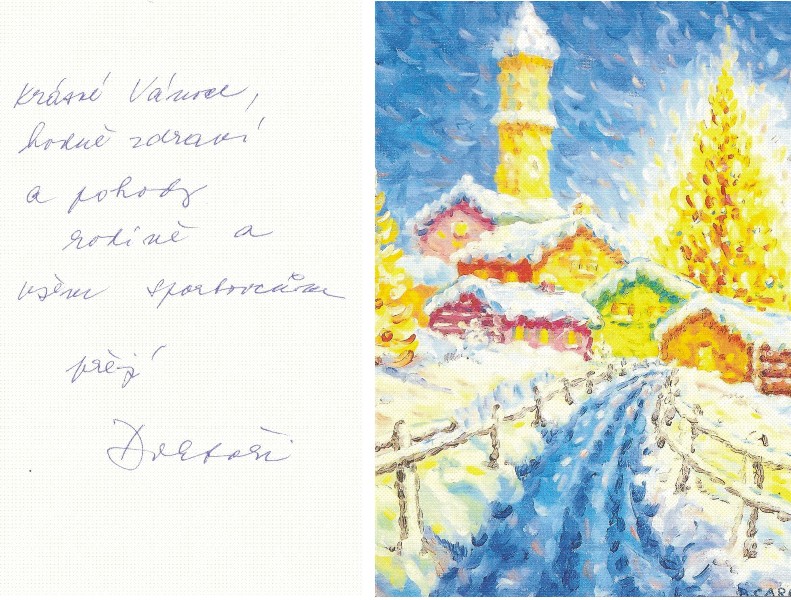 Krásné Vánoce,
hodně zdraví
a pohody
rodině a
všem sportovcům
přejí
Doktoři